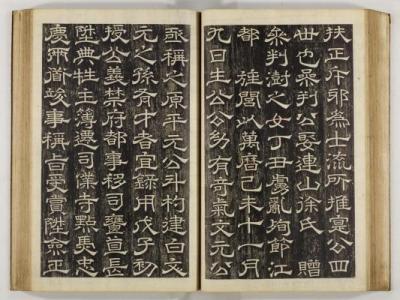 扶正斥邪爲士流所推寔公四
世也參判公娶連山徐氏 贈
參判澍之女丁丑虜亂殉節江
都 旌閭以萬曆己未十一月
九日生公公幼有奇氣文元公
亟稱之原平元公斗杓建白文
元之孫有才者宜錄用戊子初
授公義禁府都事移司饔直長
陞典牲主簿遷司僕寺點馬忠
慶兩道竣事稱旨受賞陞僉正